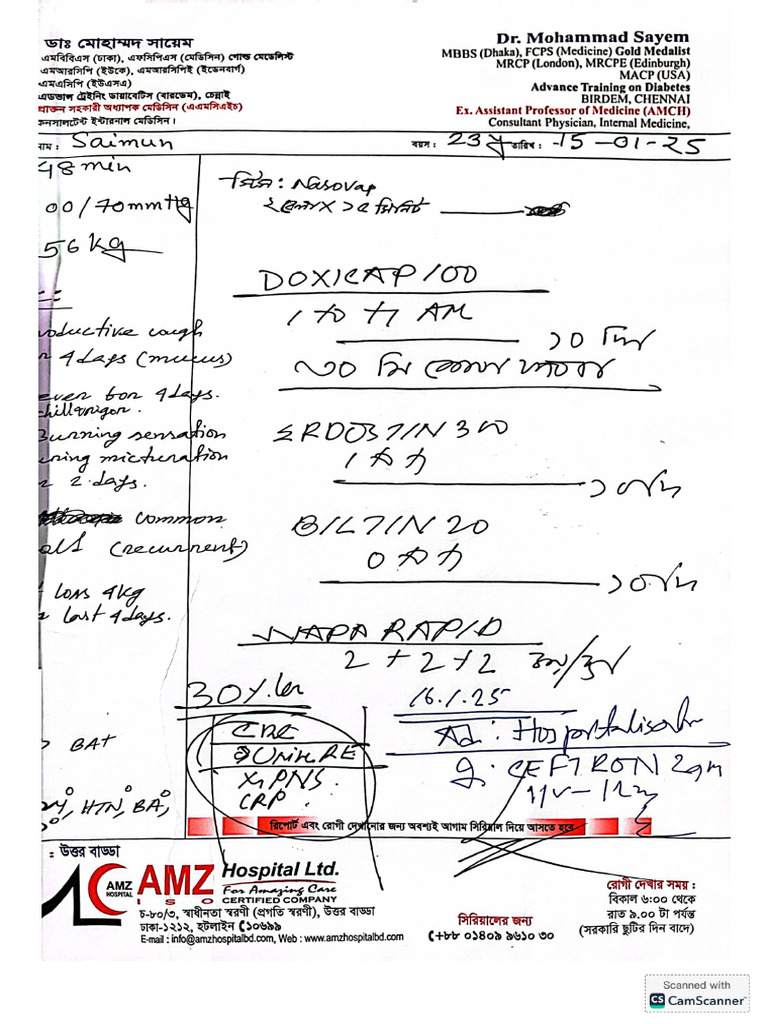 ডাঃ মোহাম্মদ সায়েম
এমবিবিএস (ঢাকা), এফসিপিএস (মেডিসিন) গোল্ড মেডেলিস্ট
এমআরসিপি (ইউকে), এমআরসিপিই (ইডেনবার্গ)
এমএসিপি (ইউএসএ)
এডভান্স ট্রেইনিং ডায়াবেটিস (বারডেম), চেন্নাই
প্রাক্তন সহকারী অধ্যাপক মেডিসিন (এএমসিএইচ)
কনসালটেন্ট ইন্টারনাল মেডিসিন।
Dr. Mohammad Sayem
MBBS (Dhaka), FCPS (Medicine) Gold Medalist
MRCP (London), MRCPE (Edinburgh)
MACP (USA)
Advance Training on Diabetes
BIRDEM, CHENNAI
Ex. Assistant Professor of Medicine (AMCH)
Consultant Physician, Internal Medicine,
নাম : Saimun বয়স : 23 তারিখ : 15-01-25
48 min
00/70mmHg
56 kg
oductive cough
4 days (mucus)
ever for 4 days.
chill
Burning sensation
ring micturation
2 days.
common
(recurrent)
loss 4kg
last 4 days.
BAT
HTN, BA,
Nasovap
DOXICAP 100
1 + 0 + 1
১০ দিন
ERDOSTIN 300
১০ দিন
BILTIN 20
১০ দিন
NAPA RAPID
2 + 2 + 2
30%
CBC
Urine RE
X-PNS
CRP
16.1.25
Ad: Hospitalisation
CEFTRON 2gm
রিপোর্ট এবং রোগী দেখানোর জন্য অবশ্যই আগাম সিরিয়াল দিয়ে আসতে হবে
: উত্তর বাড্ডা
AMZ HOSPITAL
AMZ Hospital Ltd.
For Amazing Care
ISO CERTIFIED COMPANY
চ-৮০/৩, স্বাধীনতা স্বরণী (প্রগতি স্বরণী), উত্তর বাড্ডা
ঢাকা-১২১২, হটলাইন ১০৬৯৯
E-mail : info@amzhospitalbd.com, Web : www.amzhospitalbd.com
সিরিয়ালের জন্য
+৮৮ ০১৪০৯ ৯৬১০ ৩০
রোগী দেখার সময় :
বিকাল ৬:০০ থেকে
রাত ৯.০০ টা পর্যন্ত
(সরকারি ছুটির দিন বাদে)
Scanned with
CS CamScanner